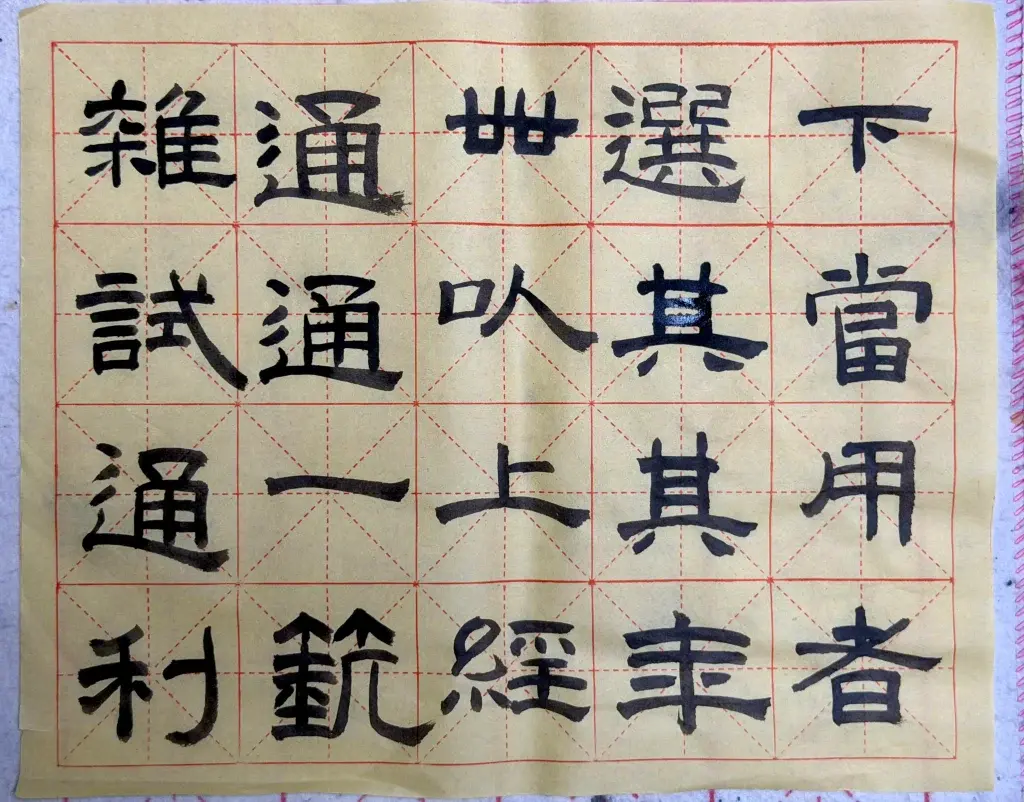 下當用者
選其其年
卌以上經
通通一藝
雜試通利